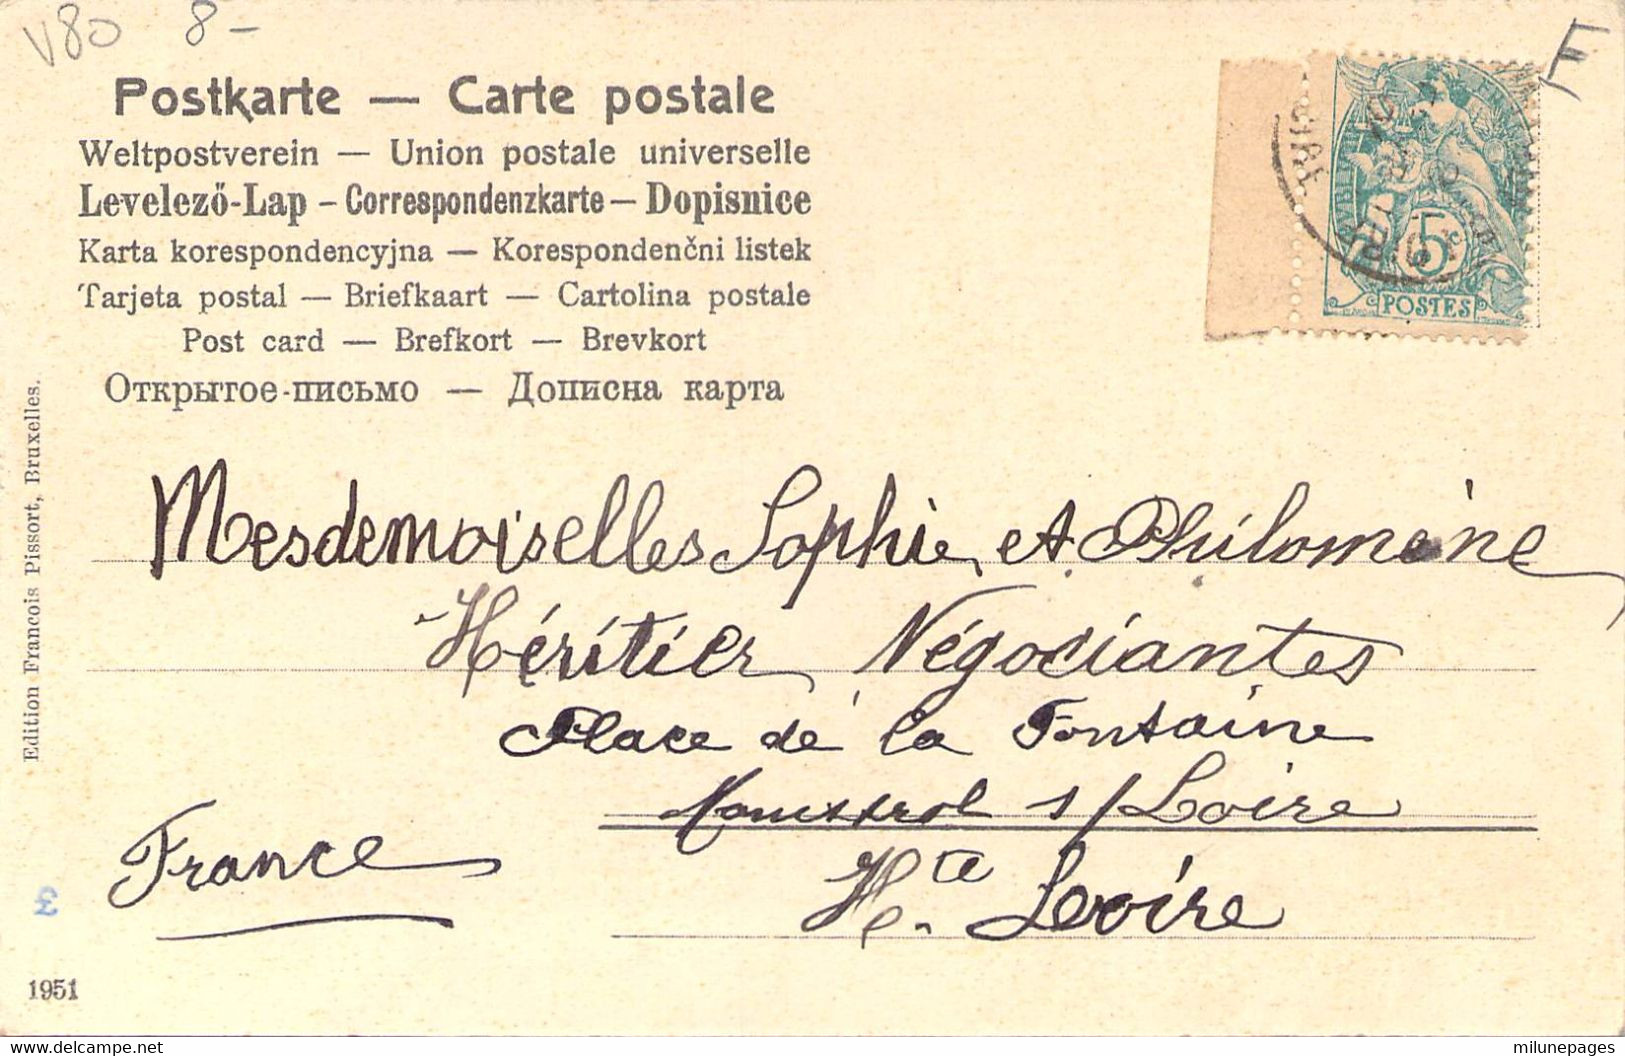 V80 8-
E
Postkarte — Carte postale
Weltpostverein — Union postale universelle
Levelező-Lap – Correspondenzkarte — Dopisnice
Karta korespondencyjna — Korespondenčni listek
Tarjeta postal — Briefkaart — Cartolina postale
Post card — Brefkort — Brevkort
Открытое-письмо — Дописна карта
5c
POSTES
Mesdemoiselles Sophie et Philomène
Héritier Négociantes
Place de la Fontaine
Monistrol s/Loire
Hte Loire
France
Edition Francois Pissort, Bruxelles.
£
1951
www.delcampe.net
milunepages